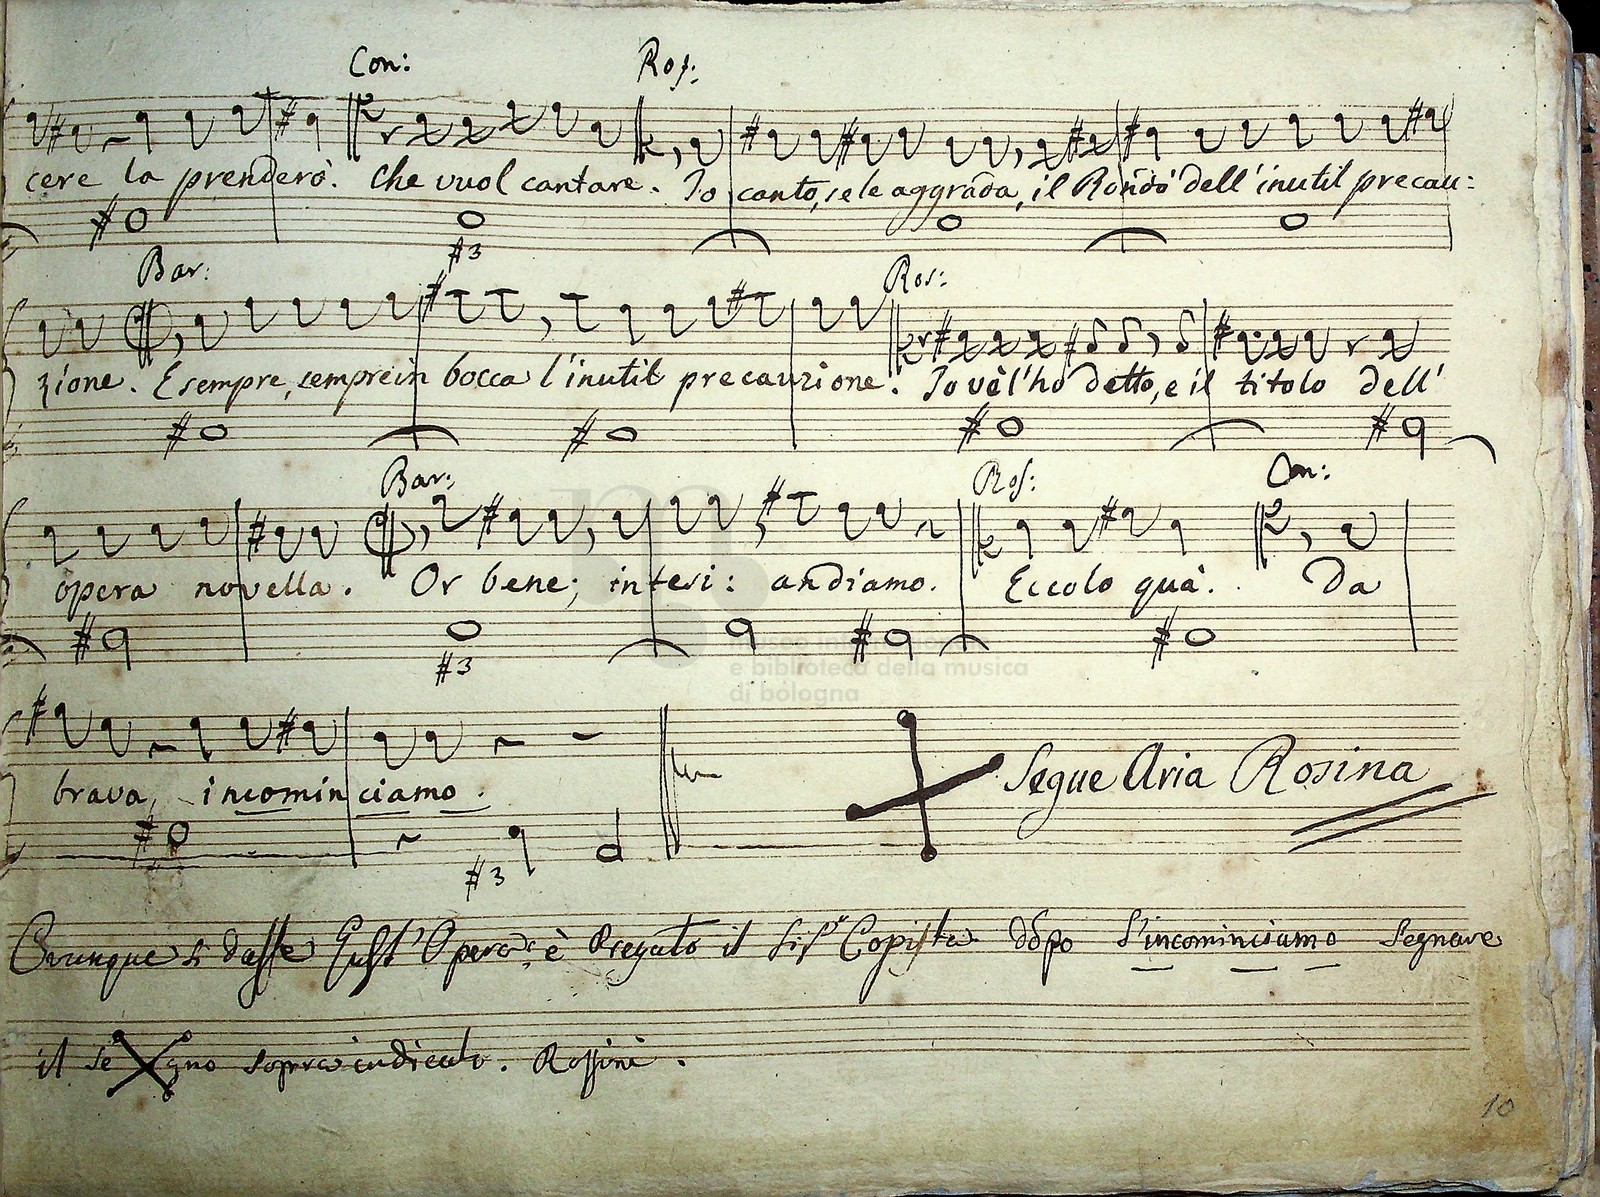 Con: Ros:
cere la prenderò. Che vuol cantare. Io canto, se le aggrada, il Rondò dell'inutil precau:
#3
Bar: Ros:
zione. E sempre, sempre in bocca l'inutil precauzione. Io vel'ho detto, e il titolo dell'
Bar: Ros: Con:
opera novella. Or bene; intesi: andiamo. Eccolo quà. Da
#3
museo internazionale
e biblioteca della musica
di bologna
brava, incominciamo. Segue Aria Rosina
#3
Ovunque si dasse Quest'Opera, è Pregato il Sigr Copista dopo l'incominciamo Segnare
il segno sopra indicato. Rossini.
10